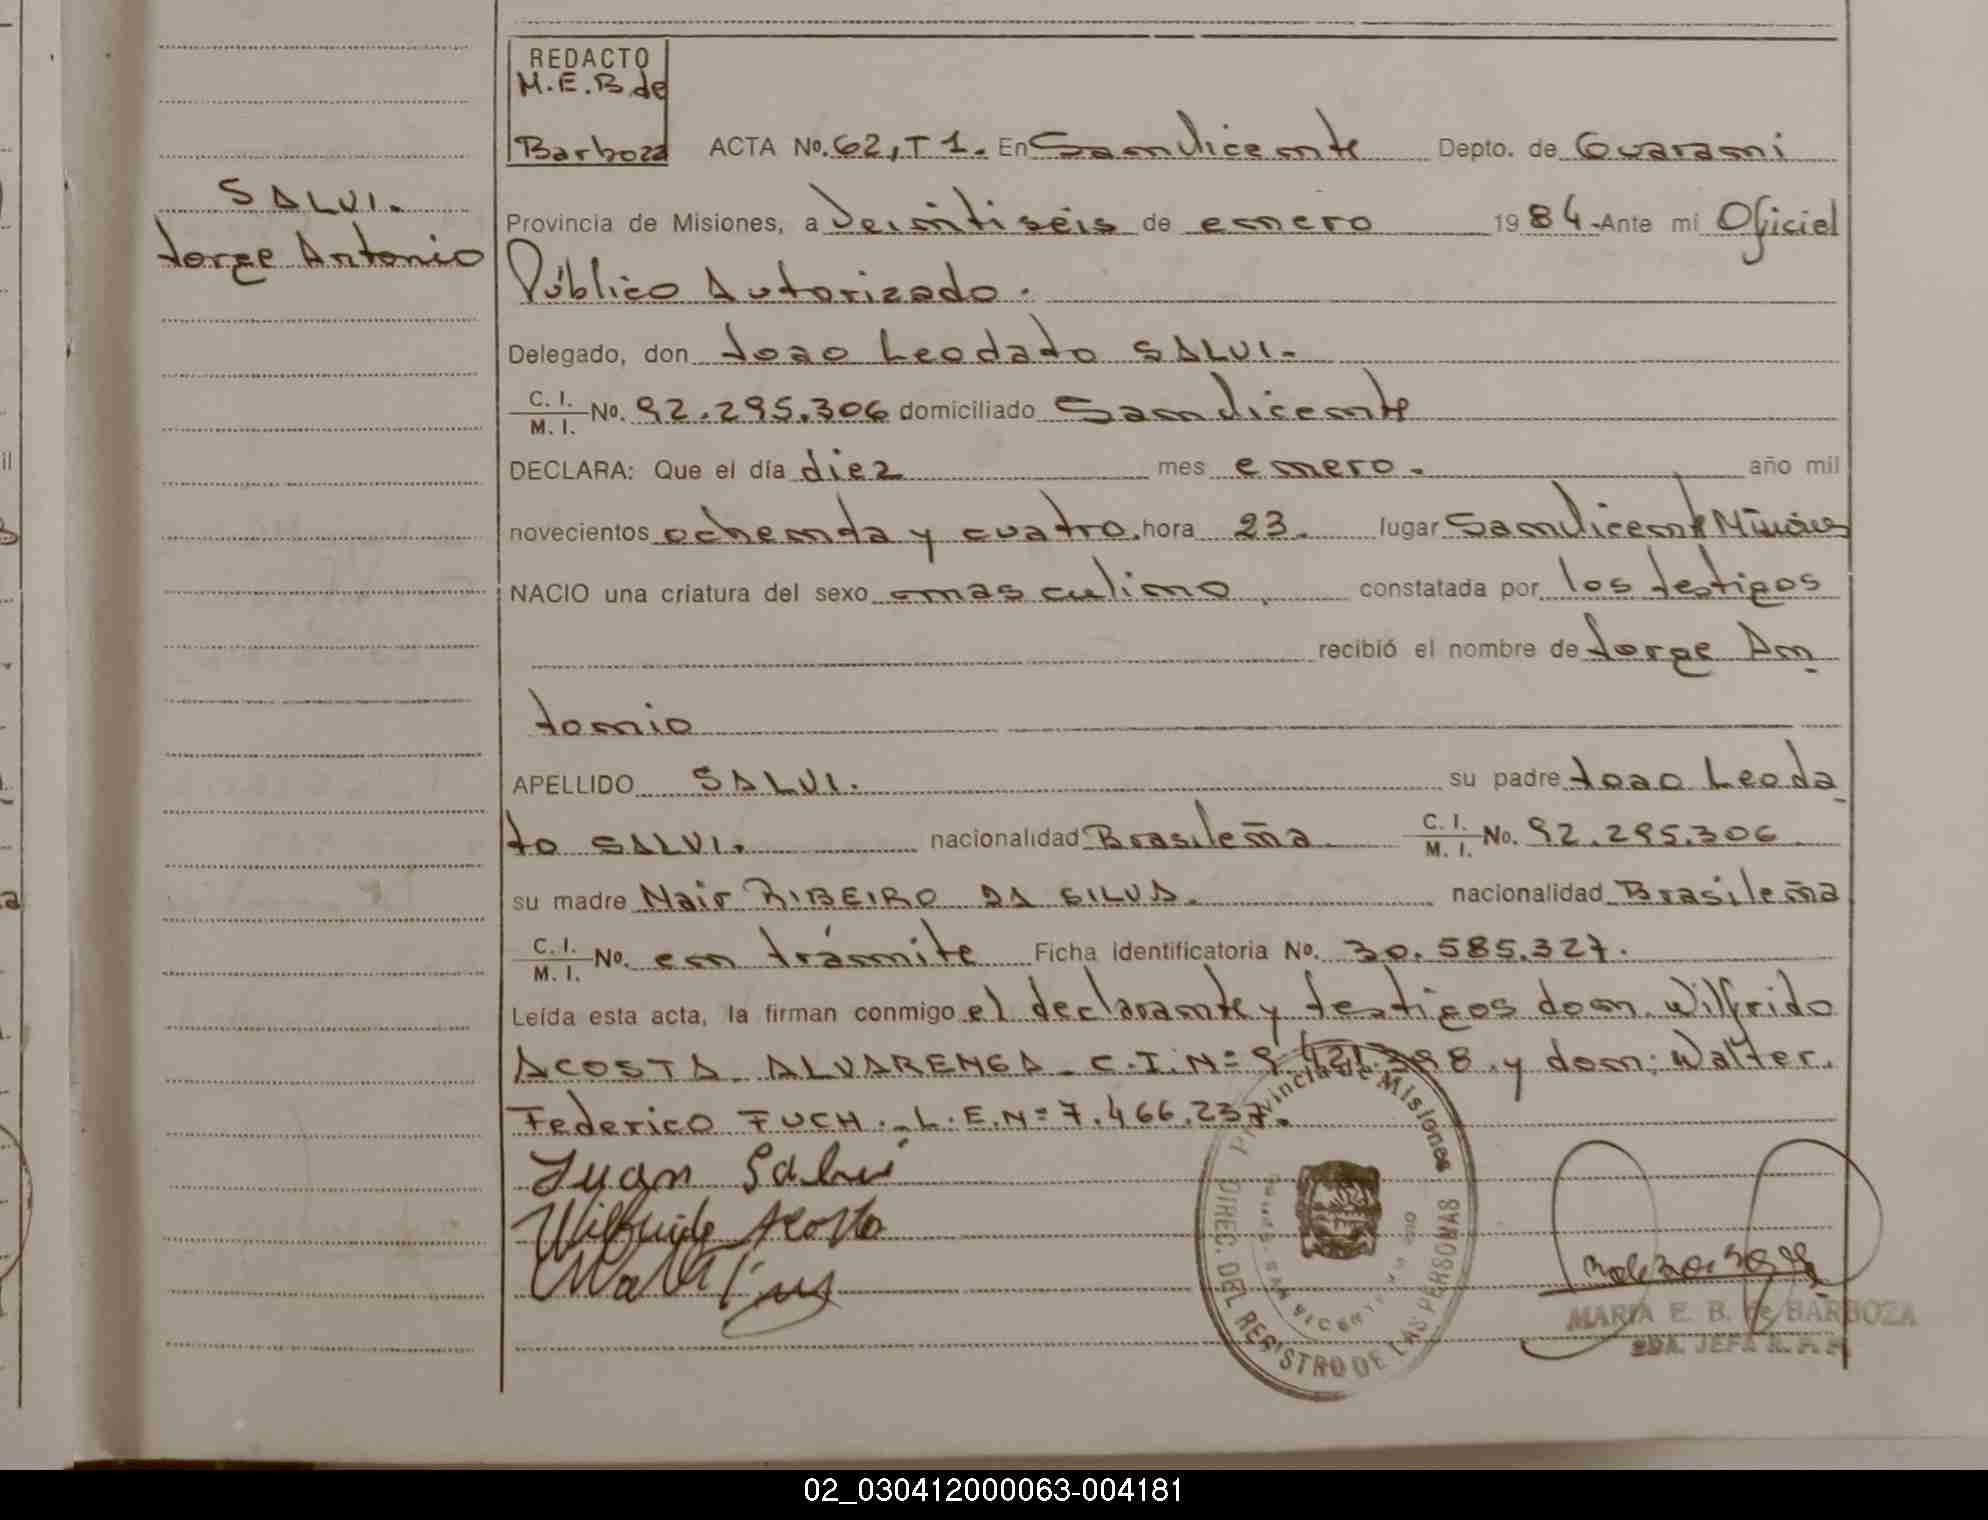 REDACTO
M.E.B. de
Barboza
ACTA No. 62, T 1. En San Vicente Depto. de Guarani
SALVI.
Jorge Antonio
Provincia de Misiones, a Veintiseis de enero 1984 Ante mi Oficial
Público Autorizado.
Delegado, don Joao Leodato SALVI.
C. I. / M. I. No. 92.295.306 domiciliado San Vicente
DECLARA: Que el día diez mes enero. año mil
novecientos ochenta y cuatro. hora 23. lugar San Vicente Misiones
NACIO una criatura del sexo masculino, constatada por los testigos
recibió el nombre de Jorge An
tonio
APELLIDO SALVI. su padre Joao Leoda
to SALVI. nacionalidad Brasileña C. I. / M. I. No. 92.295.306
su madre Nair RIBEIRO DA SILVA. nacionalidad Brasileña
C. I. / M. I. No. en trámite Ficha identificatoria No. 30.585.327.
Leída esta acta, la firman conmigo el declarante y testigos don. Wilfrido
ACOSTA ALVARENGA - C.I. N= y don: Walter.
Federico FUCH. - L.E. N= 7.466.237.
Juan Salvi
Wilfrido Acosta
Provincia de Misiones
DIREC. DEL REGISTRO DE LAS PERSONAS
MARIA E. B. de BARBOZA
JEFA R. P. P.
02_030412000063-004181